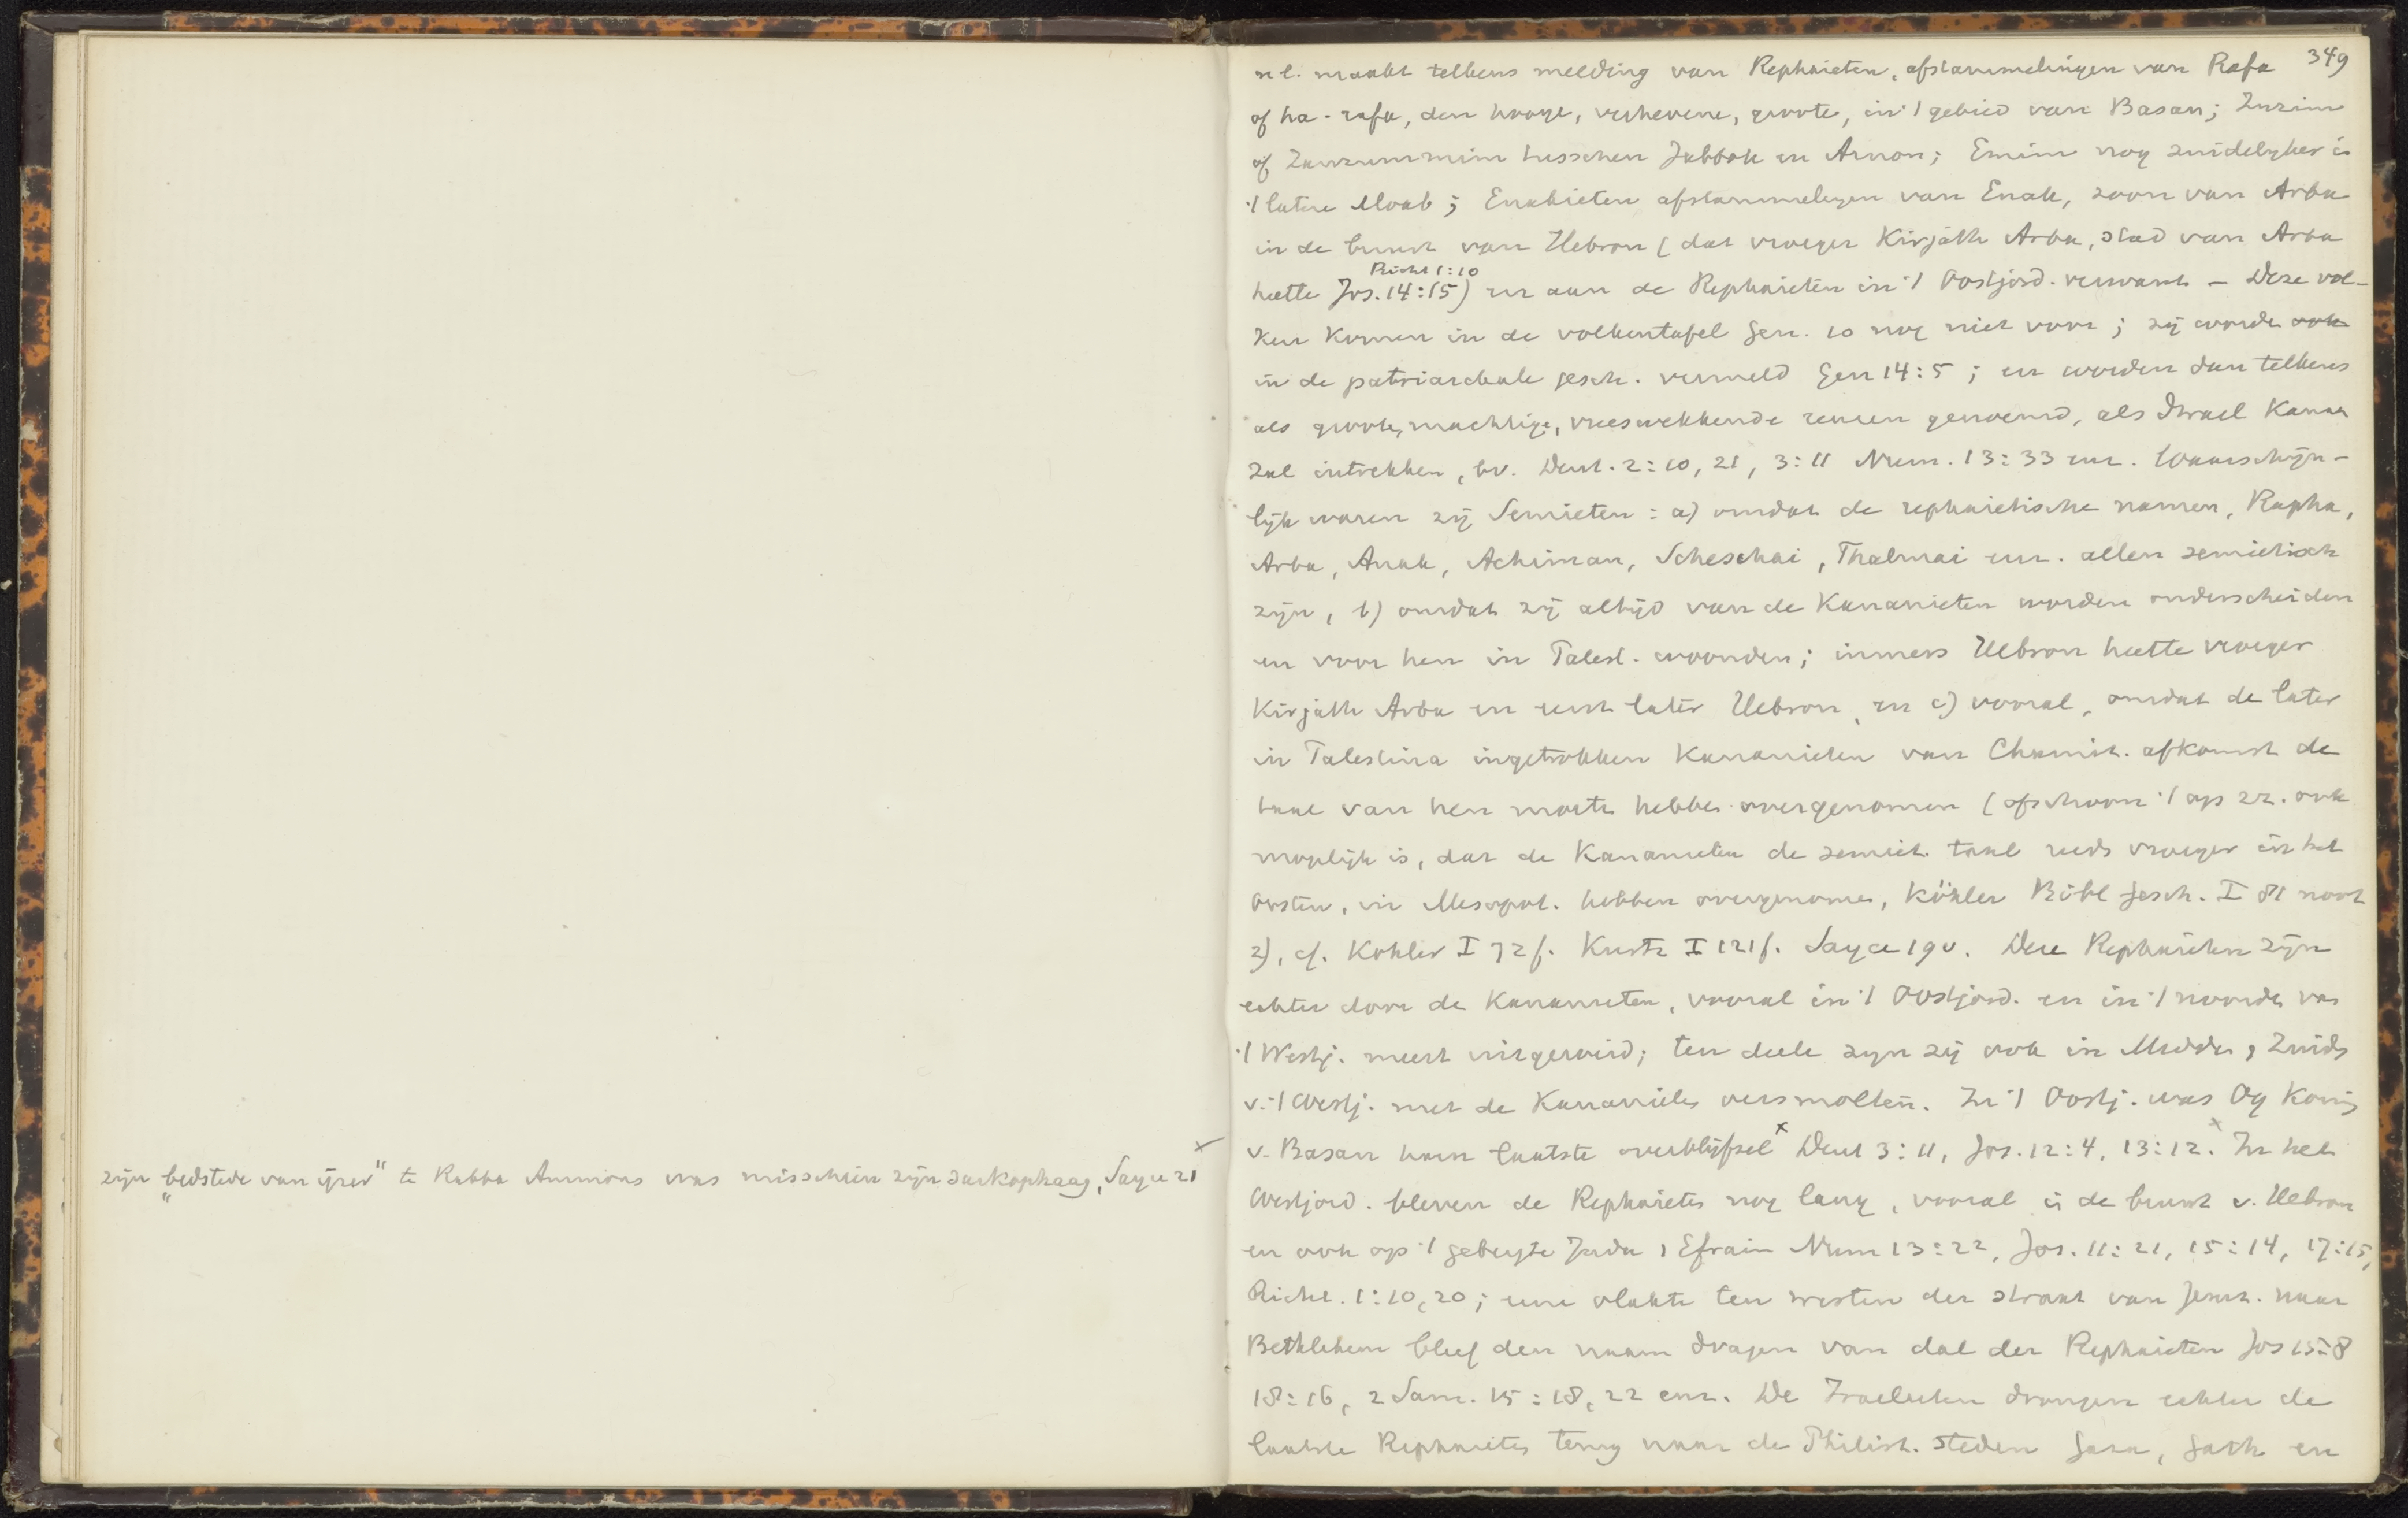 zijn „bedstede van ijzer" te Rabba Ammons was misschien zijn sarkophaag, Sayce 21 ×
349
nl. maakt telkens melding van Rephaieten, afstammelingen van Rafa
of ha-rafa, den hooge, verhevene, groote, in 't gebied van Basan; Zuzim
of Zamzummim tusschen Jabbok en Arnon; Emim nog zuidelyker in
't latere Moab; Enakieten afstammelingen van Enak, zoon van Arba
in de buurt van Hebron (dat vroeger Kirjath Arba, stad van Arba
Richt 1:10
heette Jos. 14:15) en aan de Rephaieten in 't Oostjord. verwant – Deze vol-
ken komen in de volkentafel Gen. 10 nog niet voor; zij worden ook
in de patriarchale gesch. vermeld Gen 14:5; en worden dan telkens
als groote, machtige, vreeswekkende reuzen genoemd, als Israel Kanaan
zal intrekken, bv. Deut. 2:10, 21, 3:11 Num. 13:33 enz. Waarschijn-
lijk waren zij Semieten: a) omdat de rephaietische namen, Rapha,
Arba, Anak, Achiman, Scheschai, Thalmai enz. allen semietisch
zijn, b) omdat zij altijd van de Kanaanieten worden onderscheiden
en voor hen in Palest. woonden; immers Hebron heette vroeger
Kirjath Arba en eerst later Hebron, en c) vooral, omdat de later
in Palestina ingetrokken Kanaanieten van Chamit. afkomst de
taal van hen moeten hebben overgenomen (ofschoon 't op zz. ook
mogelijk is, dat de Kanaanieten de semiet. taal reeds vroeger in het
Oosten, in Mesopot. hebben overgenomen, Köhler Bibl Gesch. I 81 noot
2), cf. Kohler I 72 f. Kurtz I 121 f. Sayce 19 v. Deze Rephaieten zijn
echter door de Kanaanieten, vooral in 't Oostjord. en in 't noorden van
't Westj. meest uitgeroeid; ten deele zyn zij ook in Midden, Zuiden
v. 't Westj. met de Kanaanieten versmolten. In 't Oostj. was Og Koning
v. Basan hun laatste overblijfsel × Deut 3:11, Jos. 12:4, 13:12. × In het
Westjord. bleven de Rephaieten nog lang, vooral in de buurt v. Hebron
en ook op 't gebergte Juda, Efraim Num 13:22, Jos. 11:21, 15:14, 17:15,
Richt. 1:10, 20; eene vlakte ten westen der straat van Jeruz. naar
Bethlehem bleef den naam dragen van dal der Rephaieten Jos 15:8
18:16, 2 Sam. 15:18, 22 enz. De Israelieten drongen echter de
laatste Rephaieten terug naar de Philist. steden Gaza, Gath en